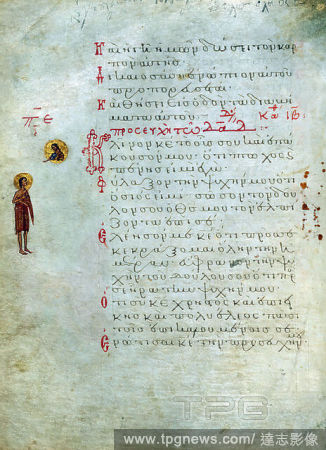 Καὶ ἡ γῆ ἡμῶν δώσει τὸν καρ
πὸν αὐτῆς
Δικαιοσύνη ἐν αὐτοῦ
προπορεύσεται
Καὶ θήσει εἰς ὁδὸν τὰ διαβή
ματα αὐτοῦ
ΠΕ
ΠΡΟΣΕΥΧΗ ΤΩ ΔΑΔ
Κλῖνον κε τὸ οὖς σου καὶ ἐπά
κουσόν μου ὅτι πτωχὸς
Φύλαξον τὴν ψυχήν μου ὅτι
ὅσιός εἰμι σῶσον τὸν δοῦ
λόν σου ὁ θς μου τὸν ἐλπί
ζοντα ἐπὶ σέ
Ἐλέησόν με κε ὅτι πρὸς σὲ
κεκράξομαι ὅλην τὴν ἡ
μέραν εὔφρανον τὴν ψυ
χὴν τοῦ δούλου σου ὅτι πρὸς
σὲ κε ἦρα τὴν ψυχήν μου
Ὅτι σὺ κε χρηστὸς καὶ ἐπιει
κὴς καὶ πολυέλεος πᾶσι
τοῖς ἐπικαλουμένοις σε
Ἐνώτισαι κε τὴν προσευχήν
TPG
www.tpgnews.com/達志影像